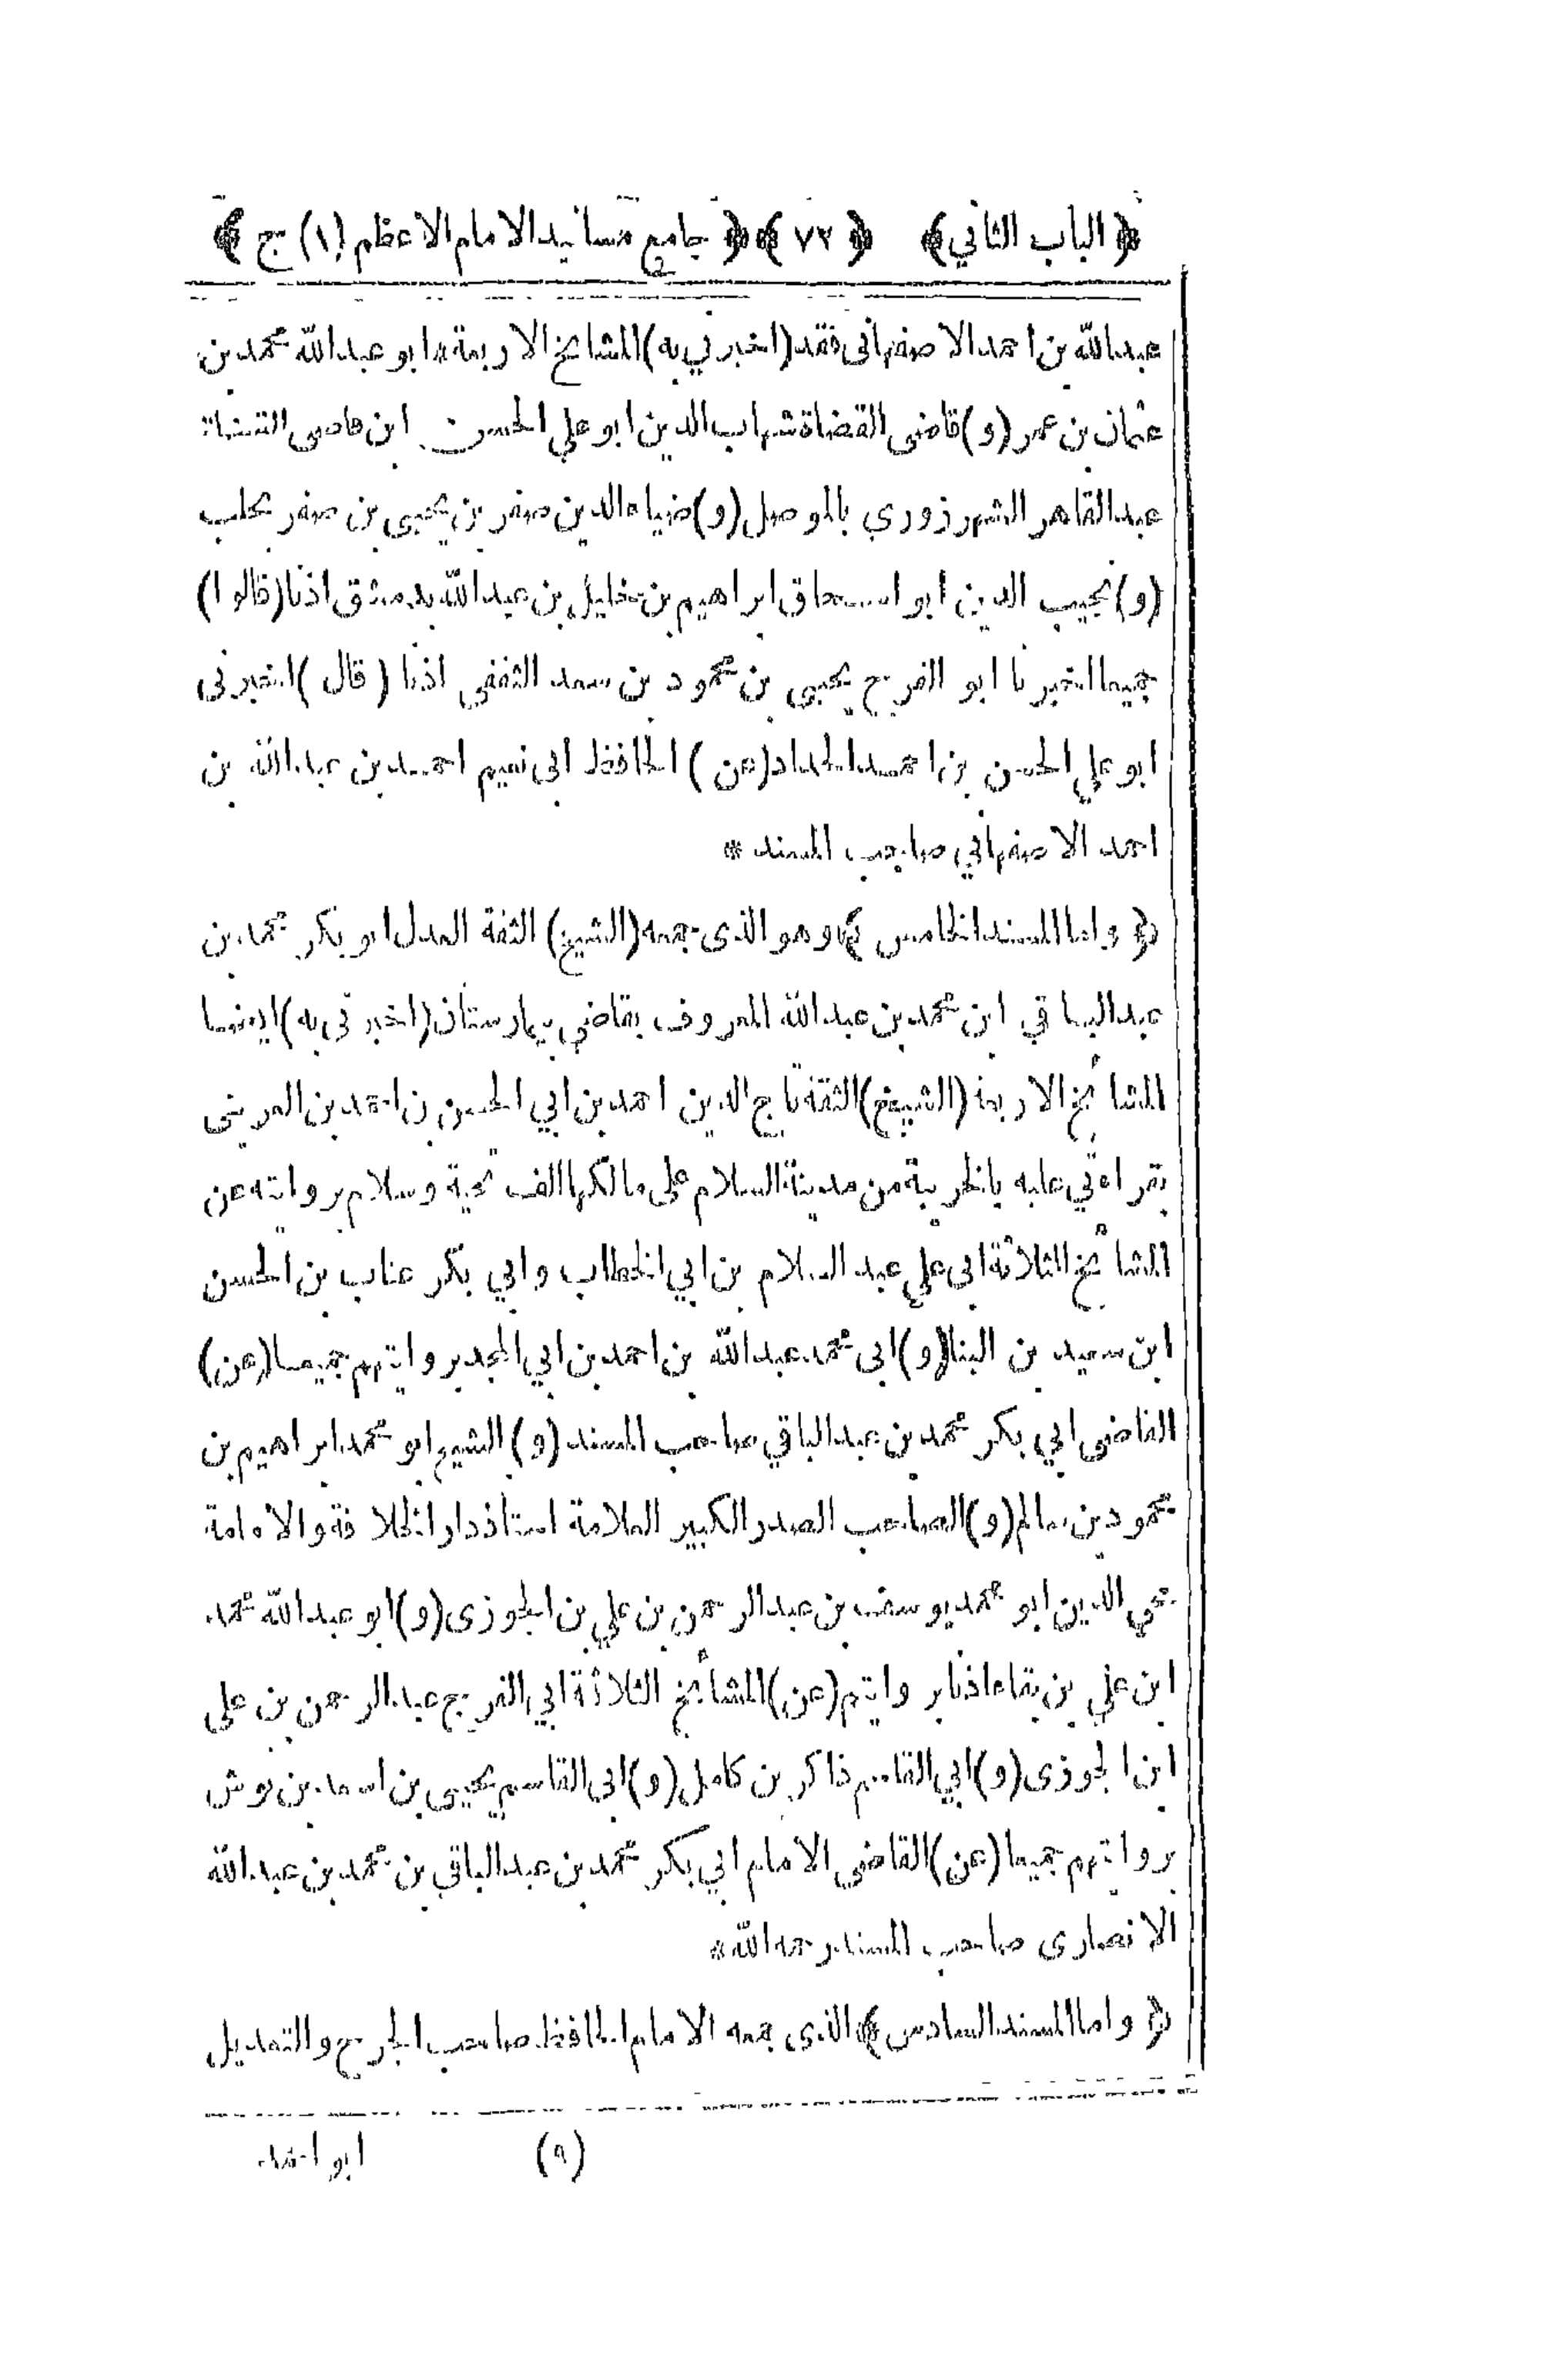 ﴿ الباب الثاني ﴾ ﴿ ٧٢ ﴾ ﴿ جامع مسانيد الامام الاعظم (١) ج ﴾
عبدالله بن احمد الاصفهانى فقد (اخبرني به) المشايخ الاربعة ابو عبدالله محمد بن
عثمان بن عمر (و) قاضى القضاة شهاب الدين ابو علي الحسن ابن قاضى القضاة
عبدالقاهر الشهرزوري بالموصل (و) ضياء الدين صقر بن يحيى بن صقر بحلب
(و) نجيب الدين ابو اسحاق ابراهيم بن خليل بن عبدالله بدمشق اذنا (قالوا)
جميعا اخبرنا ابو الفرج يحيى بن محمود بن سعد الثقفي اذنا (قال) اخبرنى
ابو علي الحسن بن احمد الحداد (عن) الحافظ ابى نعيم احمد بن عبدالله بن
احمد الاصفهاني صاحب المسند *
﴿ واما المسند الخامس ﴾ وهو الذى جمعه (الشيخ) الثقة العدل ابو بكر محمد بن
عبدالباقي ابن محمد بن عبدالله المعروف بقاضي بيمارستان (اخبرنى به) ايضا
المشائخ الاربعة (الشيخ) الثقة تاج الدين احمد بن ابي الحسن بن احمد بن العريني
بقراءتي عليه بالحربية من مدينة السلام على مالكها الف تحية وسلام بروايته عن
المشائخ الثلاثة ابى علي عبد السلام بن ابي الخطاب وابي بكر عتاب بن الحسن
ابن سعيد بن البنا (و) ابى محمد عبدالله بن احمد بن ابي المجد بروايتهم جميعا (عن)
القاضى ابي بكر محمد بن عبدالباقي صاحب المسند (و) الشيخ ابو محمد ابراهيم بن
محمود بن سالم (و) الصاحب الصدر الكبير العلامة استاذ دار الخلافة والامامة
محي الدين ابو محمد يوسف بن عبدالرحمن بن علي بن الجوزى (و) ابو عبدالله محمد
ابن علي بن بقاء اذنا بروايتهم (عن) المشائخ الثلاثة ابي الفرج عبدالرحمن بن على
ابن الجوزى (و) ابي القاسم ذاكر بن كامل (و) ابى القاسم يحيى بن اسعد بن بوش
بروايتهم جميعا (عن) القاضي الامام ابي بكر محمد بن عبدالباقي بن محمد بن عبدالله
الانصارى صاحب المسند رحمه الله *
﴿ واما المسند السادس ﴾ الذى جمعه الامام الحافظ صاحب الجرح والتعديل
(٩) ابو احمد